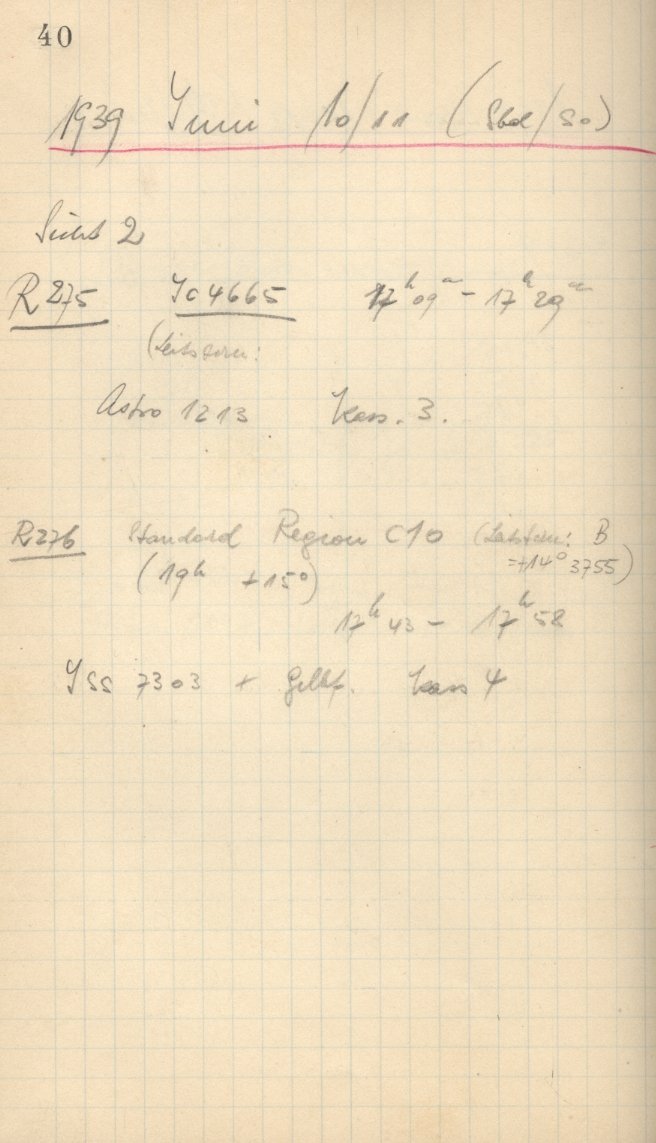 40
1939 Juni 10/11 (Sbd/So)
Sicht 2
R275 Jc 4665 17h 09m - 17h 29m
(Leitstern:
Astro 1213 Kass. 3.
R276 Standard Region C10 (Leitstern: B
= +14° 3755)
(19h +15°)
17h 43 - 17h 58
Iss 7303 + Gelbf. Kass 4